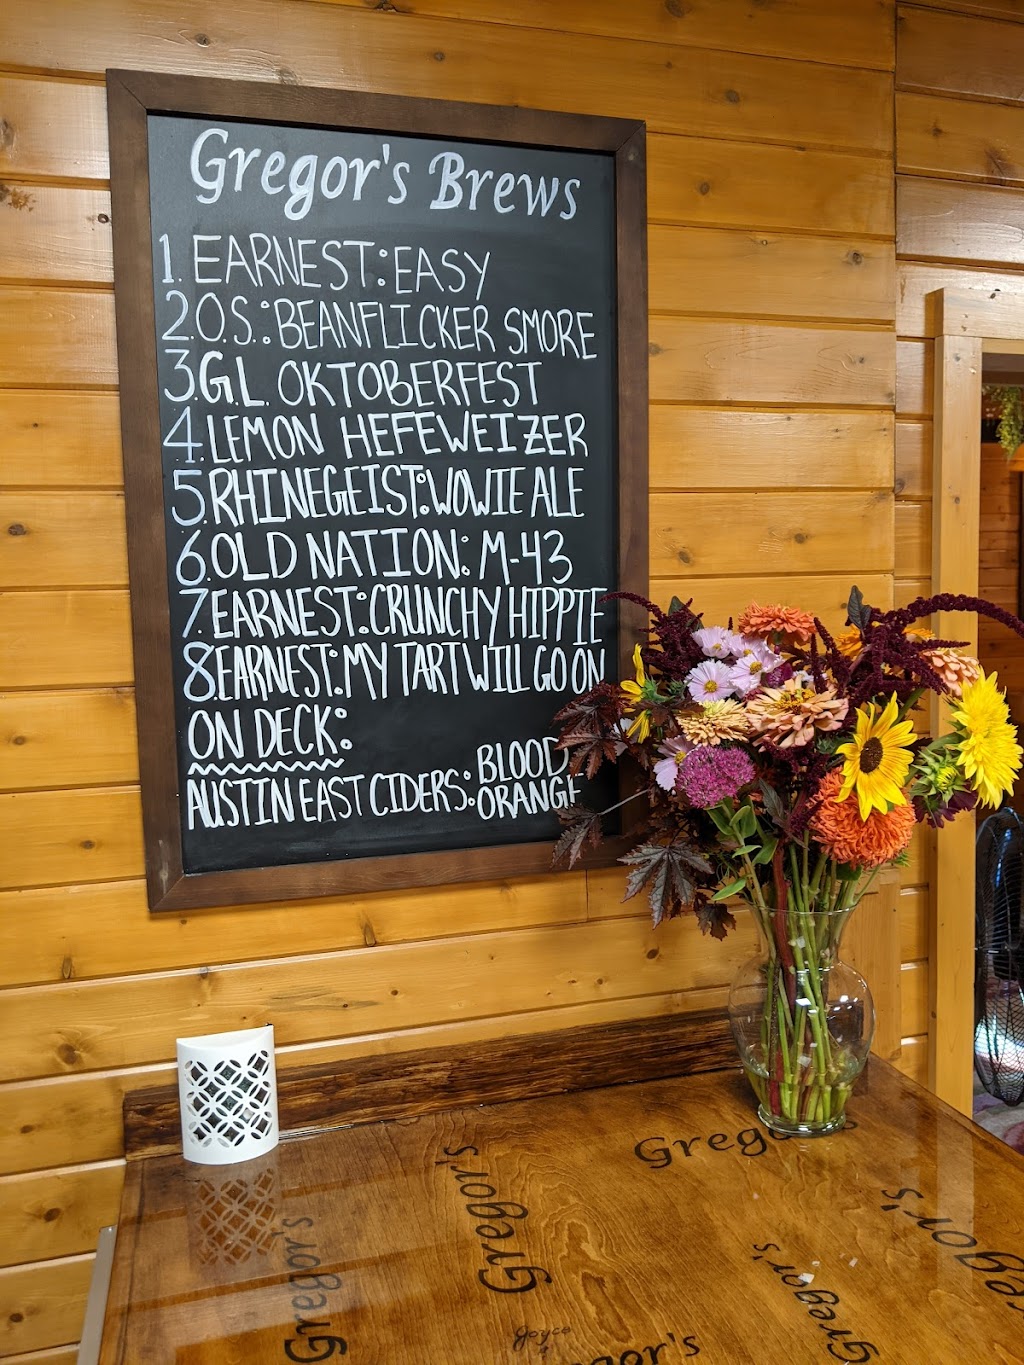 Gregor's Brews
1. EARNEST: EASY
2. O.S.: BEANFLICKER SMORE
3. G.L. OKTOBERFEST
4. LEMON HEFEWEIZER
5. RHINEGEIST: WOWIE ALE
6. OLD NATION: M-43
7. EARNEST: CRUNCHY HIPPIE
8. EARNEST: MY TART WILL GO ON
ON DECK:
AUSTIN EAST CIDERS: BLOOD
ORANGE
Gregor's
Gregor's
Gregor's
Gregor's
Gregor's
Joyce
Gregor's